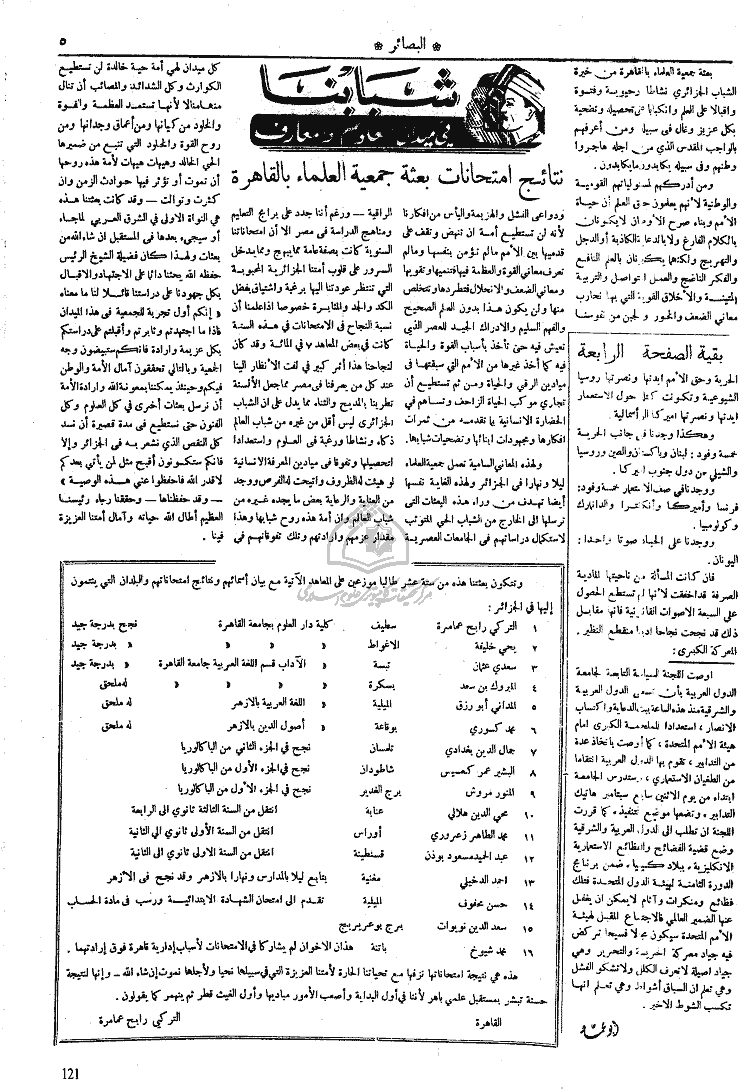 * البصائر *
٥
شبابنا
في ميدان معاهدهم ومعارفهم
نتائج امتحانات بعثة جمعية العلماء بالقاهرة
بعثة جمعية العلماء بالقاهرة من خيرة
الشباب الجزائري نشاطا وحيوية وفتوة
واقبالا على العلم وانكبابا على تحصيله وتضحية
بكل عزيز وغال في سبيله ومن أعرفهم
بالواجب المقدس الذي من اجله هاجروا
وطنهم وفي سبيله يكابدون مايكابدون.
ومن أدركهم لمسؤلياتهم القومية
والوطنية لأنهم يعلمون حق العلم أن حياة
الأمم وبناء صرح الأوطان لايكونان
بالكلام الفارغ ولابالدعاية الكاذبة والدجل
والتهريج ولكنها يكونان بالعلم النافع
والفكر الناضج والعمل المتواصل والتربية
المتينة والأخلاق القوية التي بها نحارب
معاني الضعف والخور والجبن من نفوسنا
ودواعى الفشل والهزيمة واليأس من افكارنا
لأنه لن تستطيع أمة ان تنهض وتقف على
قدميها بين الأمم مالم تؤمن بنفسها ومالم
تعرف معاني القوة والعظمة فيها فتنميها وتقويها
ومعاني الضعف والانحلال فتطردها وتتخلص
منها ولن يكون هذا بدون العلم الصحيح
والفهم السليم والادراك الجيد للعصر الذي
تعيش فيه حتى تأخذ بأسباب القوة والحياة
فيه كما أخذ غيرها من الأمم التي سبقتها في
ميادين الرقي والحياة ومن ثم تستطيع أن
تجاري موكب الحياة الزاحف وتساهم في
الحضارة الانسانية بما تقدمه من ثمرات
افكارها ومجهودات ابنائها وتضحيات شبابها.
ولهذه المعاني السامية تعمل جمعية العلماء
ليلا ونهارا في الجزائر ولهذه الغاية نفسها
أيضا تهدف من وراء هذه البعثات التي
ترسلها الى الخارج من الشباب الحي المتوثب
لاستكمال دراساتهم في الجامعات العصرية
الراقية — ورغم أننا جدد على برامج التعليم
ومناهج الدراسة في مصر الا أن امتحاناتنا
السنوية كانت بصفة عامة مما يبهج ومما يدخل
السرور على قلوب أمتنا الجزائرية المحبوبة
التي تنتظر عودتنا اليها برغبة واشتياق بفضل
الكد والجد والمثابرة خصوصا اذا علمنا أن
نسبة النجاح في الامتحانات في هذه السنة
كانت في بعض المعاهد ٧ في المائة وقد كان
لنجاحنا هذا أثر كبير في لفت الأنظار الينا
عند كل من يعرفنا في مصر مما جعل الألسنة
تطرينا بالمديح والثناء مما يدل على ان الشباب
الجزائري ليس أقل من غيره من شباب العالم
ذكاء ونشاطا ورغبة في العلوم واستعدادا
لتحصيلها وتفوقا في ميادين المعرفة الانسانية
لو هيئت له الظروف واتيحت له الفرص ووجد
من العناية والرعاية بعض ما يجده غيره من
شباب العالم وان أمة هذه روح شبابها وهذا
مقدار عزمهم وارادتهم وتلك تفوقاتهم في
كل ميدان لهي أمة حية خالدة لن تستطيع
الكوارث وكل الشدائد والمصائب أن تنال
منها منالا لأنها تستمد العظمة والقوة
والخلود من كيانها ومن أعماق وجدانها ومن
روح القوة والخلود التي تنبع من ضميرها
الحي الخالد وهيهات هيهات لأمة هذه روحها
أن تموت أو تؤثر فيها حوادث الزمن وان
كثرت وتوالت — وقد كانت بعثتنا هذه
هي النواة الاولى في الشرق العربي لما جاء
أو سيجيء بعدها في المستقبل ان شاء الله من
بعثات ولهذا كان فضيلة الشيخ الرئيس
حفظه الله يحثنا دائما على الاجتهاد والاقبال
بكل جهودنا على دراستنا قائلا لنا ما معناه
« إنكم أول تجربة للجمعية في هذا الميدان
فاذا ما اجتهدتم وثابرتم وأقبلتم على دراستكم
بكل عزيمة وارادة فانكم ستبيضون وجه
الجمعية وبالتالي تحققون آمال الأمة والوطن
فيكم وحينئذ يمكننا بمعونة الله وارادة الأمة
أن نرسل بعثات أخرى في كل العلوم وكل
الفنون حتى نستطيع في مدة قصيرة أن نسد
كل النقص الذي نشعر به في الجزائر وإلا
فانكم ستكونون أقبح مثل لمن يأتي بعدكم
لاقدر الله فاحفظوا عني هذه الوصية »
— وقد حفظناها — وحققنا رجاء رئيسنا
العظيم أطال الله حياته وآمال أمتنا العزيزة
فينا.
بقية الصفحة الرابعة
الحرية وحق الأمم ايدتها ونصرتها روسيا
الشيوعية وتكونت كتل حول الاستعمار
ايدتها ونصرتها اميركا الرأسمالية.
وهكذا وجدنا في جانب الحرية
خمسة وفود: لبنان وباكستان والصين وروسيا
والشيلي من دول جنوب اميركا.
ووجدنا في صف الاستعمار خمسة وفود:
فرنسا وأميركا وانكلترا والدانمارك
وكولومبيا.
ووجدنا على الحياد صوتا واحدا:
اليونان.
فان كانت المسألة من ناحيتها المادية
الصرفة قد اخفقت لأنها لم تستطع الحصول
على السبعة الاصوات القانونية فانها مقابل
ذلك قد نجحت نجاحا ادبيا منقطع النظير.
المعركة الكبرى:
اوصت اللجنة السياسة التابعة لجامعة
الدول العربية بأن تسعى الدول العربية
والشرقية منذ هذه الساعة ببث الدعاية واكتساب
الانصار، استعدادا للملحمة الكبرى امام
هيئة الأمم المتحدة، كما أوصت باتخاذ عدة
من التدابير، تقوم بها الدول العربية انتقاما
من الطغيان الاستعماري، ستدرس الجامعة
ابتداء من يوم الاثنين سابع سبتامبر هاتيك
التدابير، وتضعها موضع تنفيذ، كما قررت
الجامعة ان تطلب الى الدول العربية والشرقية
وضع قضية الفضائح والفظائع الاستعمارية
الانكليزية، ببلاد كينيا، ضمن برنامج
الدورة الثامنة لهيئة الدول المتحدة فتلك
فظائع ومنكرات وآثام لايمكن ان يغفل
عنها الضمير العالمي فالاجتماع المقبل لهيئة
الأمم المتحدة سيكون مجالا فسيحا تركض
فيه جياد معركة الحرية والتحرير وهي
جياد اصيلة لاتعرف الكلل ولاتشكو الفشل
وهي تعلم ان السباق أشواط وهي تعلم انها
تكسب الشوط الاخير.
وتتكون بعثتنا هذه من ستة عشر طالبا موزعين على المعاهد الآتية مع بيان أسمائهم ونتائج امتحاناتهم والبلدان التي ينتمون
إليها في الجزائر:
١ التركي رابح عمامرة سطيف كلية دار العلوم بجامعة القاهرة نجح بدرجة جيد
٢ يحي خليفة الاغواط » » » » » بدرجة جيد
٣ سعدي عثمان تبسة » الآداب قسم اللغة العربية جامعة القاهرة » بدرجة جيد
٤ المبروك بن سعد بسكرة » » » » له ملحق
٥ المداني أبو رزق الميلية » اللغة العربية بالازهر له ملحق
٦ محمد كسوري بوقاعة » أصول الدين بالازهر له ملحق
٧ جمال الدين بغدادي تلمسان نجح في الجزء الثاني من الباكالوريا
٨ البشير عمر كعسيس شاطودان نجح في الجزء الأول من الباكالوريا
٩ المنور مروش برج الغدير نجح في الجزء الأول من الباكالوريا
١٠ محي الدين هلالي عنابة انتقل من السنة الثالثة ثانوي الى الرابعة
١١ محمد الطاهر زعروري أوراس انتقل من السنة الأولى ثانوي الى الثانية
١٢ عبد الحميد مسعود بوذن قسنطينة انتقل من السنة الاولى ثانوي الى الثانية
١٣ احمد الدخيلي مغنية يتابع ليلا بالمدارس ونهارا بالازهر وقد نجح في الأزهر
١٤ حسن محفوف الميلية تقدم الى امتحان الشهادة الابتدائية ورسب في مادة الحساب
١٥ سعد الدين نويوات برج بوعريريج
١٦ محمد شيوخ باتنة هذان الاخوان لم يشاركا في الامتحانات لأسباب إدارية قاهرة فوق إرادتهما.
هذه هي نتيجة امتحاناتها نزفها مع تحياتنا الحارة لأمتنا العزيزة التي في سبيلها نحيا ولأجلها نموت إن شاء الله — وإنها لنتيجة
حسنة تبشر بمستقبل علمي باهر لأننا في أول البداية وأصعب الأمور مباديها وأول الغيث قطر ثم ينهمر كما يقولون.
القاهرة التركي رابح عمامرة
121